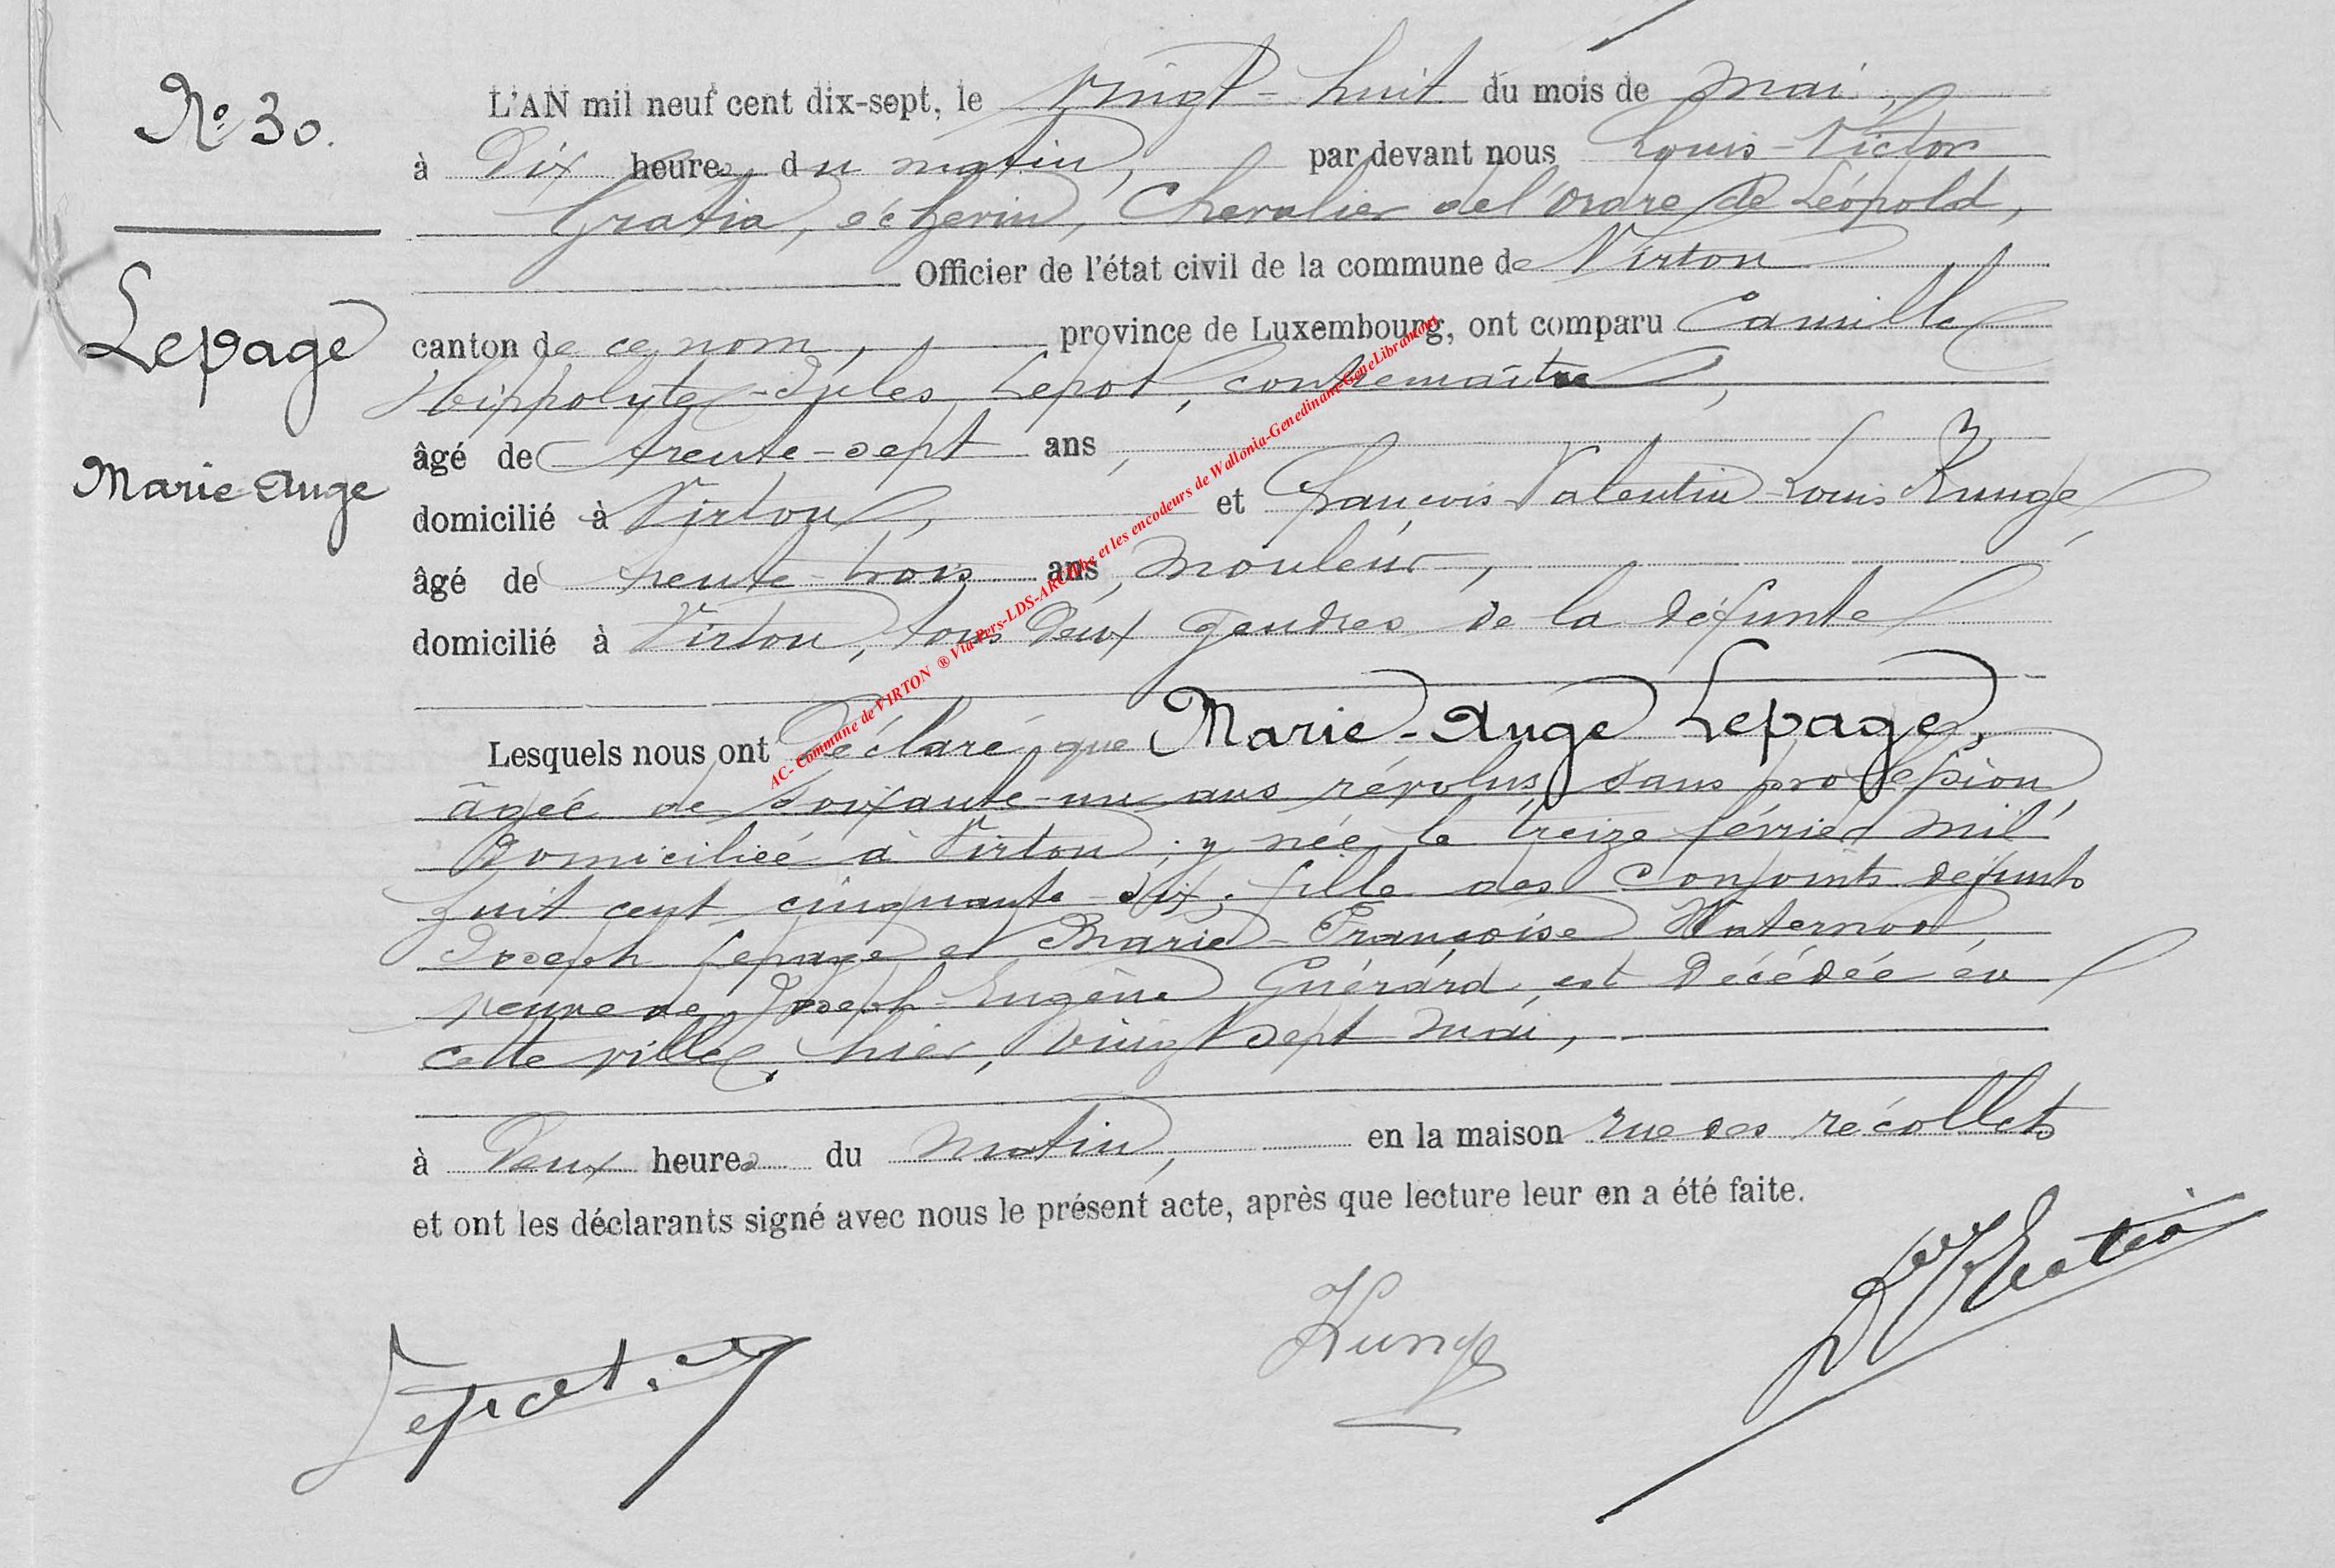 N° 30.
L'AN mil neuf cent dix-sept, le vingt-huit du mois de mai,
à dix heures du matin, par devant nous Louis-Victor
Gratia, échevin, Chevalier de l'ordre de Léopold,
Officier de l'état civil de la commune de Virton
Lepage
Marie-Ange
canton de ce nom, province de Luxembourg, ont comparu Camille
Hippolyte-Jules Lepot, contremaître,
âgé de trente-sept ans,
domicilié à Virton, et François-Valentin-Louis Kunge,
âgé de trente-trois ans, mouleur,
domicilié à Virton, tous deux gendres de la défunte
Lesquels nous ont déclaré que Marie-Ange Lepage,
âgée de soixante-un ans révolus, sans profession,
domiciliée à Virton, y née le treize février mil
huit cent cinquante-six, fille des conjoints défunts
Joseph Lepage et Marie-Françoise Waternod,
veuve de Joseph-Eugène Guérard, est décédée en
cette ville, hier, vingt-sept mai,
à deux heures du matin, en la maison rue des récollets
et ont les déclarants signé avec nous le présent acte, après que lecture leur en a été faite.
Lepot
Kunge
Gratia
AC- Commune de VIRTON ® Via Pers-LDS-ARCH.be et les encodeurs de Wallonia-Genedinant-GeneLibramont